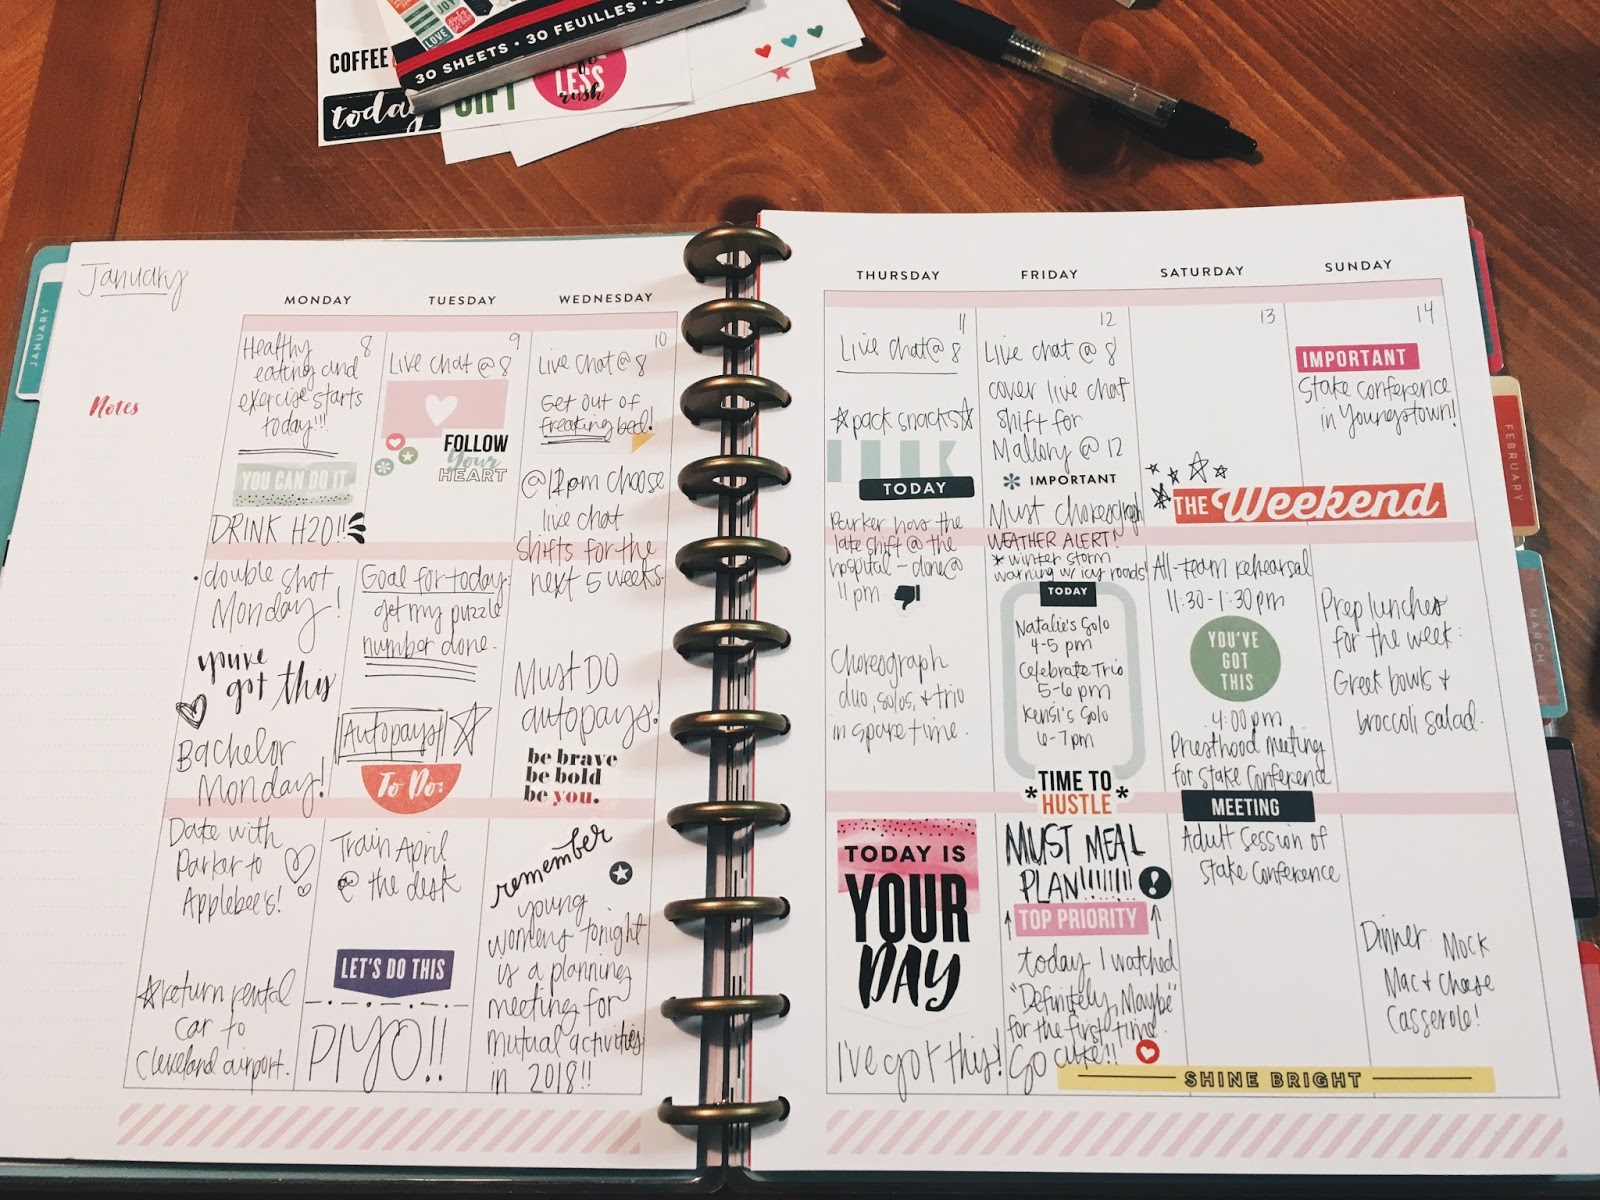 COFFEE
today
GIFT
LESS
rush
JOY
LOVE
30 SHEETS • 30 FEUILLES • 30
January
JANUARY
Notes
MONDAY
8
Healthy
eating and
exercise starts
today!!!
YOU CAN DO IT
DRINK H2O!!
double shot
Monday!
you've
got this
Bachelor
Monday!
Date with
Parker to
Applebee's!
return rental
car to
Cleveland airport.
TUESDAY
9
Live chat @ 8
FOLLOW
Your
HEART
Goal for today:
get my puzzle
number done.
Autopays!!
To Do:
Train April
@ the desk
LET'S DO THIS
PIYO!!
WEDNESDAY
10
Live chat @ 8
Get out of
freaking bed!
@ 12pm choose
live chat
shifts for the
next 5 weeks.
Must DO
autopays!
be brave
be bold
be you.
remember
young
womens tonight
is a planning
meeting for
mutual activities
in 2018!!
THURSDAY
11
Live chat @ 8
pack snacks
TODAY
Parker has the
late shift @ the
hospital - done @
11 pm.
Choreograph
duo, solos, & trio
in spare time.
TODAY IS
YOUR
DAY
I've got this!
FRIDAY
12
Live chat @ 8
cover live chat
shift for
Mallory @ 12
* IMPORTANT
Must choreograph
WEATHER ALERT!
* winter storm
warning w/ icy roads!
TODAY
Natalie's Solo
4-5 pm
Celebrate Trio
5-6 pm
Kensi's Solo
6-7 pm
TIME TO
* HUSTLE *
MUST MEAL
PLAN!!!!!!!
TOP PRIORITY
today I watched
"Definitely, Maybe"
for the first time.
So cute!!
SATURDAY
13
THE Weekend
All-team rehearsal
11:30-1:30pm
YOU'VE
GOT
THIS
4:00pm
Priesthood Meeting
for Stake Conference
MEETING
Adult Session of
Stake Conference
SHINE BRIGHT
SUNDAY
14
IMPORTANT
Stake Conference
in Youngstown!
Prep lunches
for the week:
Greek bowls &
broccoli salad.
Dinner: Mock
Mac & Cheese
Casserole!
FEBRUARY
MARCH